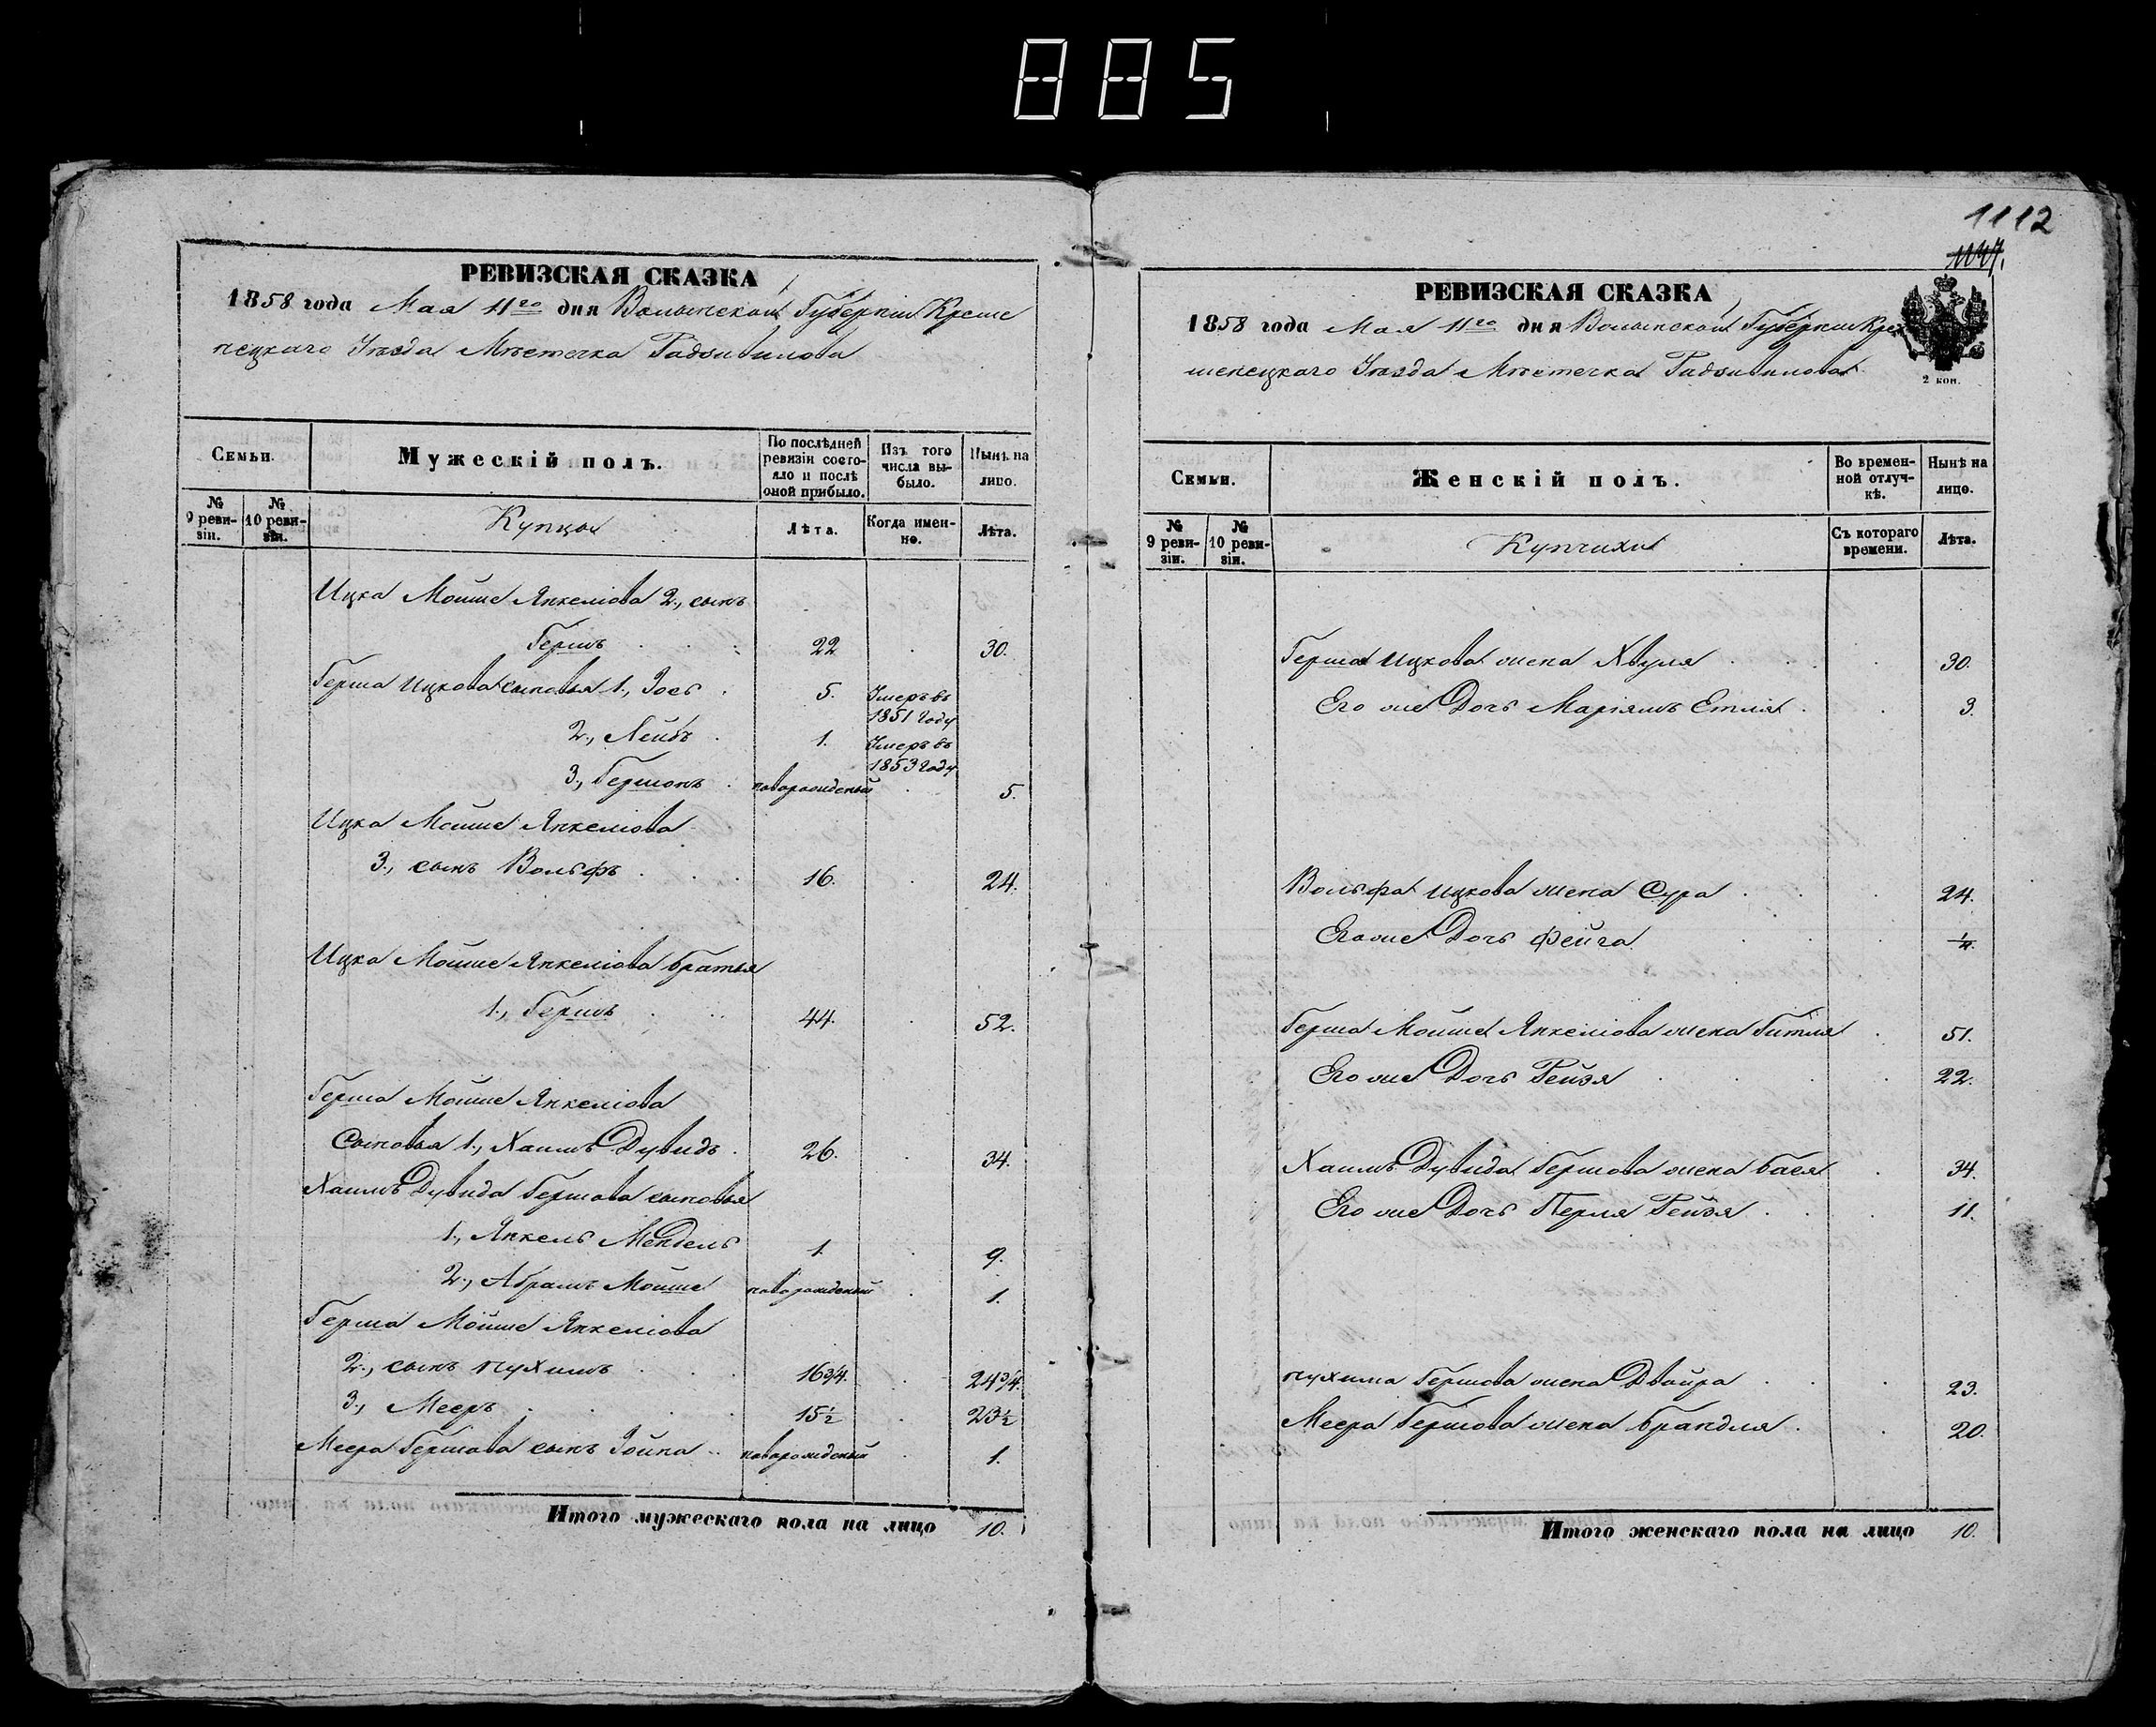 885
РЕВИЗСКАЯ СКАЗКА
1858 года Мая 11го дня Волынской Губернiи Креме
нецкаго Уѣзда Мѣстечка Радзивилова
Семьи.
Мужескiй полъ.
По послѣдней ревизiи состояло и послѣ оной прибыло.
Изъ того числа выбыло.
Нынѣ на лицо.
№ 9 ревизiи.
№ 10 ревизiи.
Купцы
Лѣта.
Когда именно.
Лѣта.
Ицка Мошие Янкелiова 2., сынъ
Гершъ 22 30.
Герша Ицкова сыновья 1., Iось 5. Умеръ въ 1851 году
2., Лейбъ 1. Умеръ въ 1853 году
3., Гершонъ новорожденый 5.
Ицка Мошие Янкелiова
3., сынъ Вольфъ 16. 24.
Ицка Мошие Янкелiова братья
1., Гершъ 44. 52.
Герша Мошие Янкелiова
Сыновья 1., Хаимъ Дувидъ 26. 34.
Хаимъ Дувида Гершова сыновья
1., Янкель Мендель 1. 9.
2., Абрамъ Мойше новорожденый 1.
Герша Мойше Янкелiова
2., сынъ Нухимъ 16 3/4. 24 3/4.
3., Мееръ 15 1/2 23 1/2
Меера Гершова сынъ Iойна новорожденый 1.
Итого мужескаго пола на лицо 10.
1112
РЕВИЗСКАЯ СКАЗКА
1858 года Мая 11го дня Волынской Губернiи Кре
менецкаго Уѣзда Мѣстечка Радзивилова
2 коп.
Семьи.
Женскiй полъ.
Во временной отлучкѣ.
Нынѣ на лицо.
№ 9 ревизiи.
№ 10 ревизiи.
Купчихи
Съ котораго времени.
Лѣта.
Герша Ицкова жена Хвуля 30.
Его же Дочь Марiямъ Етля 3.
Вольфа Ицкова жена Сура 24.
Его же Дочь Фейга
Герша Мойше Янкелiова жена Гитля 51.
Его же Дочь Рейзя 22.
Хаимъ Дувида Гершова жена Бася 34.
Его же Дочь Перля Рейзя 11.
Нухима Гершова жена Двойра 23.
Меера Гершова жена Брандля 20.
Итого женскаго пола на лицо 10.